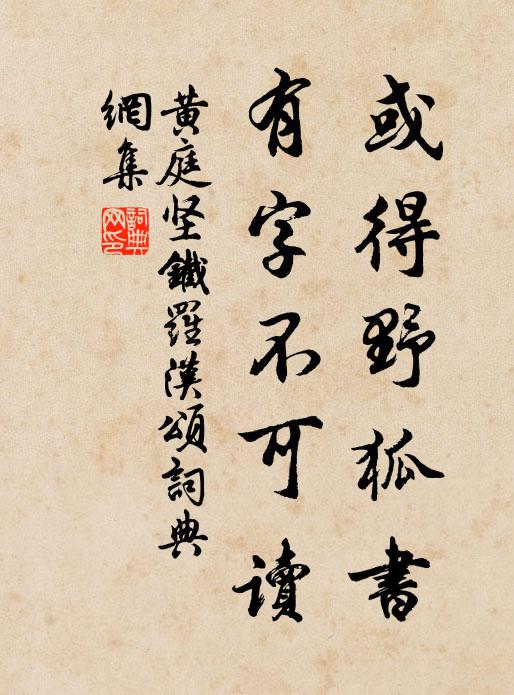 或得野狐書
有字不可讀
黄庭坚鐵羅漢頌詞典
網集
詞典網印